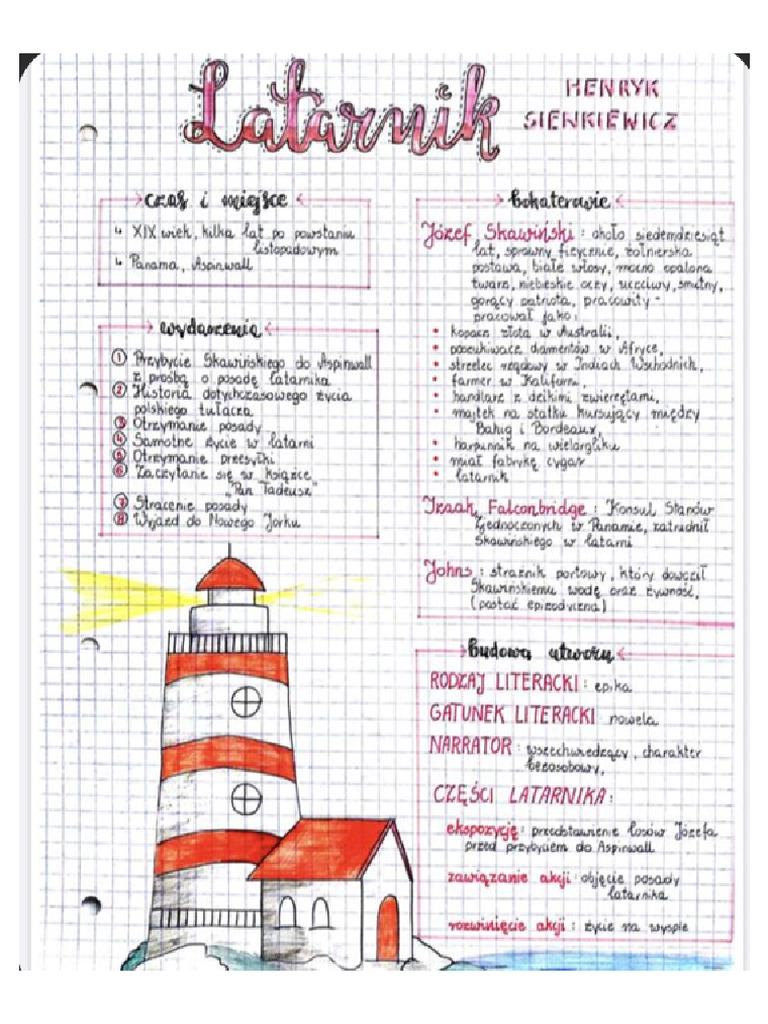 Latarnik
HENRYK
SIENKIEWICZ
czas i miejsce
XIX wiek, kilka lat po powstaniu
listopadowym
Panama, Aspinwall
wydarzenia
1 Przybycie Skawińskiego do Aspinwall
z prośbą o posadę latarnika
2 Historia dotychczasowego życia
polskiego tułacza
3 Otrzymanie posady
4 Samotne życie w latarni
5 Otrzymanie przesyłki
6 Zaczytanie się w książce
„Pan Tadeusz"
7 Stracenie posady
8 Wyjazd do Nowego Jorku
bohaterowie
Józef Skawiński : około siedemdziesiąt
lat, sprawny fizycznie, żołnierska
postawa, białe włosy, mocno opalona
twarz, niebieskie oczy, uczciwy, smutny,
gorący patriota, pracowity -
pracował jako:
• kopacz złota w Australii,
• poszukiwacz diamentów w Afryce,
• strzelec rządowy w Indiach Wschodnich,
• farmer w Kaliforni,
• handlarz z dzikimi zwierzętami,
• majtek na statku kursujący między
Bahią i Bordeaux,
• harpunnik na wielorybliku
• miał fabrykę cygar
• latarnik
Izaak Falconbridge : Konsul Stanów
Zjednoczonych w Panamie, zatrudnił
Skawińskiego w latarni
Johns : strażnik portowy, który dowoził
Skawińskiemu wodę oraz żywność,
(postać epizodyczna)
budowa utworu
RODZAJ LITERACKI : epika
GATUNEK LITERACKI nowela
NARRATOR : wszechwiedzący, charakter
bezosobowy,
CZĘŚCI LATARNIKA :
ekspozycję : przedstawienie losów Józefa
przed przybyciem do Aspinwall
zawiązanie akcji : objęcie posady
latarnika
rozwinięcie akcji : życie na wyspie